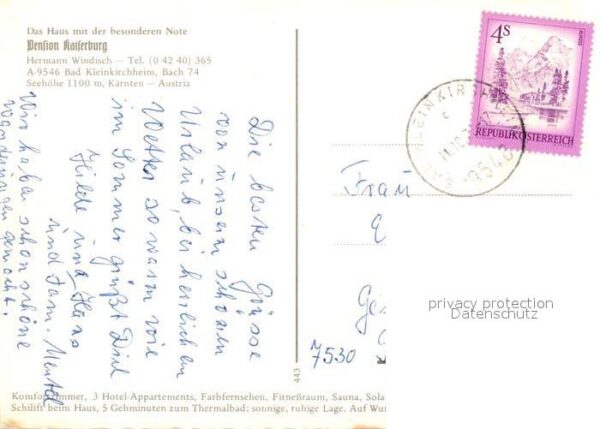 Das Haus mit der besonderen Note
Pension Kaiserburg
Hermann Windisch — Tel. (0 42 40) 365
A-9546 Bad Kleinkirchheim, Bach 74
Seehöhe 1100 m, Kärnten — Austria
Die besten Grüsse
von unserm schönen
Urlaub, bei herrlichem
Wetter so warm wie
im Sommer grüßt Dich
Hilde und Hans
und Fam.
Wir haben schon schöne
Wanderungen gemacht.
4s
REPUBLIK ÖSTERREICH
9546
Frau
7530
privacy protection
Datenschutz
443
Komfortzimmer, 3 Hotel-Appartements, Farbfernsehen, Fitneßraum, Sauna, Sola
Schilift beim Haus, 5 Gehminuten zum Thermalbad; sonnige, ruhige Lage. Auf Wu